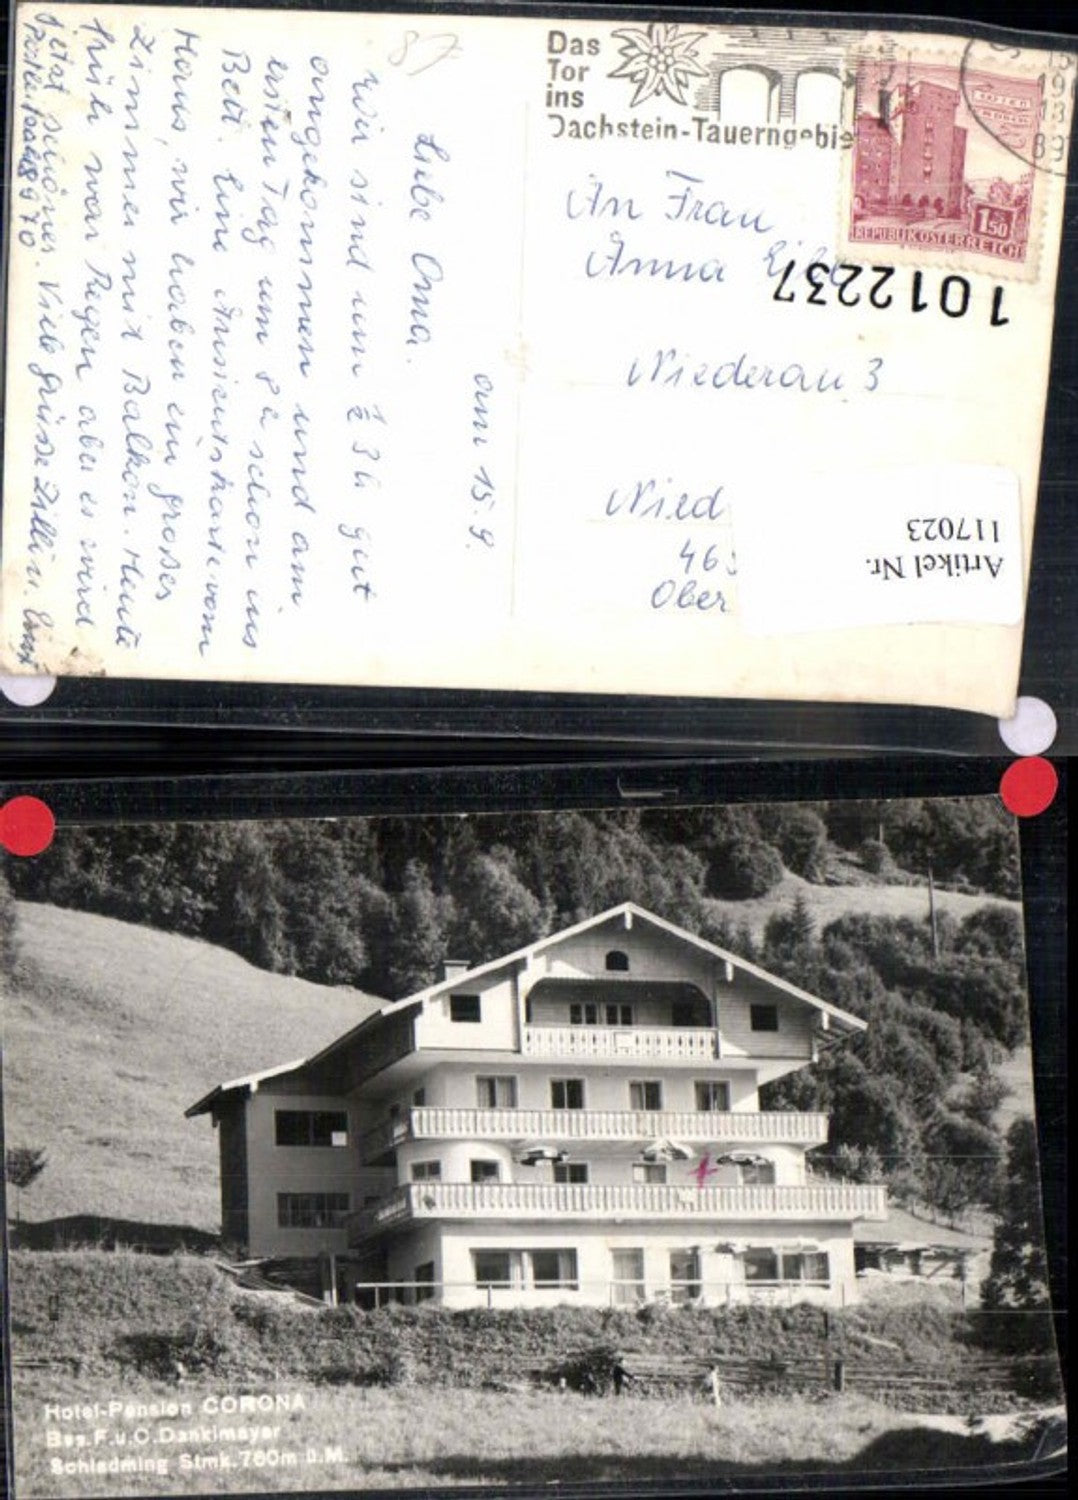 Das
Tor
ins
Dachstein-Tauerngebie
19
13
89
1.50
REPUBLIK ÖSTERREICH
87
An Frau
Anna
1012237
Niederau 3
Nied
46
Ober
Artikel Nr.
117023
am 15. 9.
Liebe Oma.
Wir sind um ½ 3h gut
angekommen und am
ersten Tag um 8h schon ins
Bett. Eine Ansichtskarte vom
Haus, wir haben ein großes
Zimmer mit Balkon. Heute
früh war Regen aber es wird
jetzt schönes. Viele Grüsse
Hotel-Pension CORONA
Bes. F. u. C. Danklmayer
Schladming Stmk. 760m ü. M.